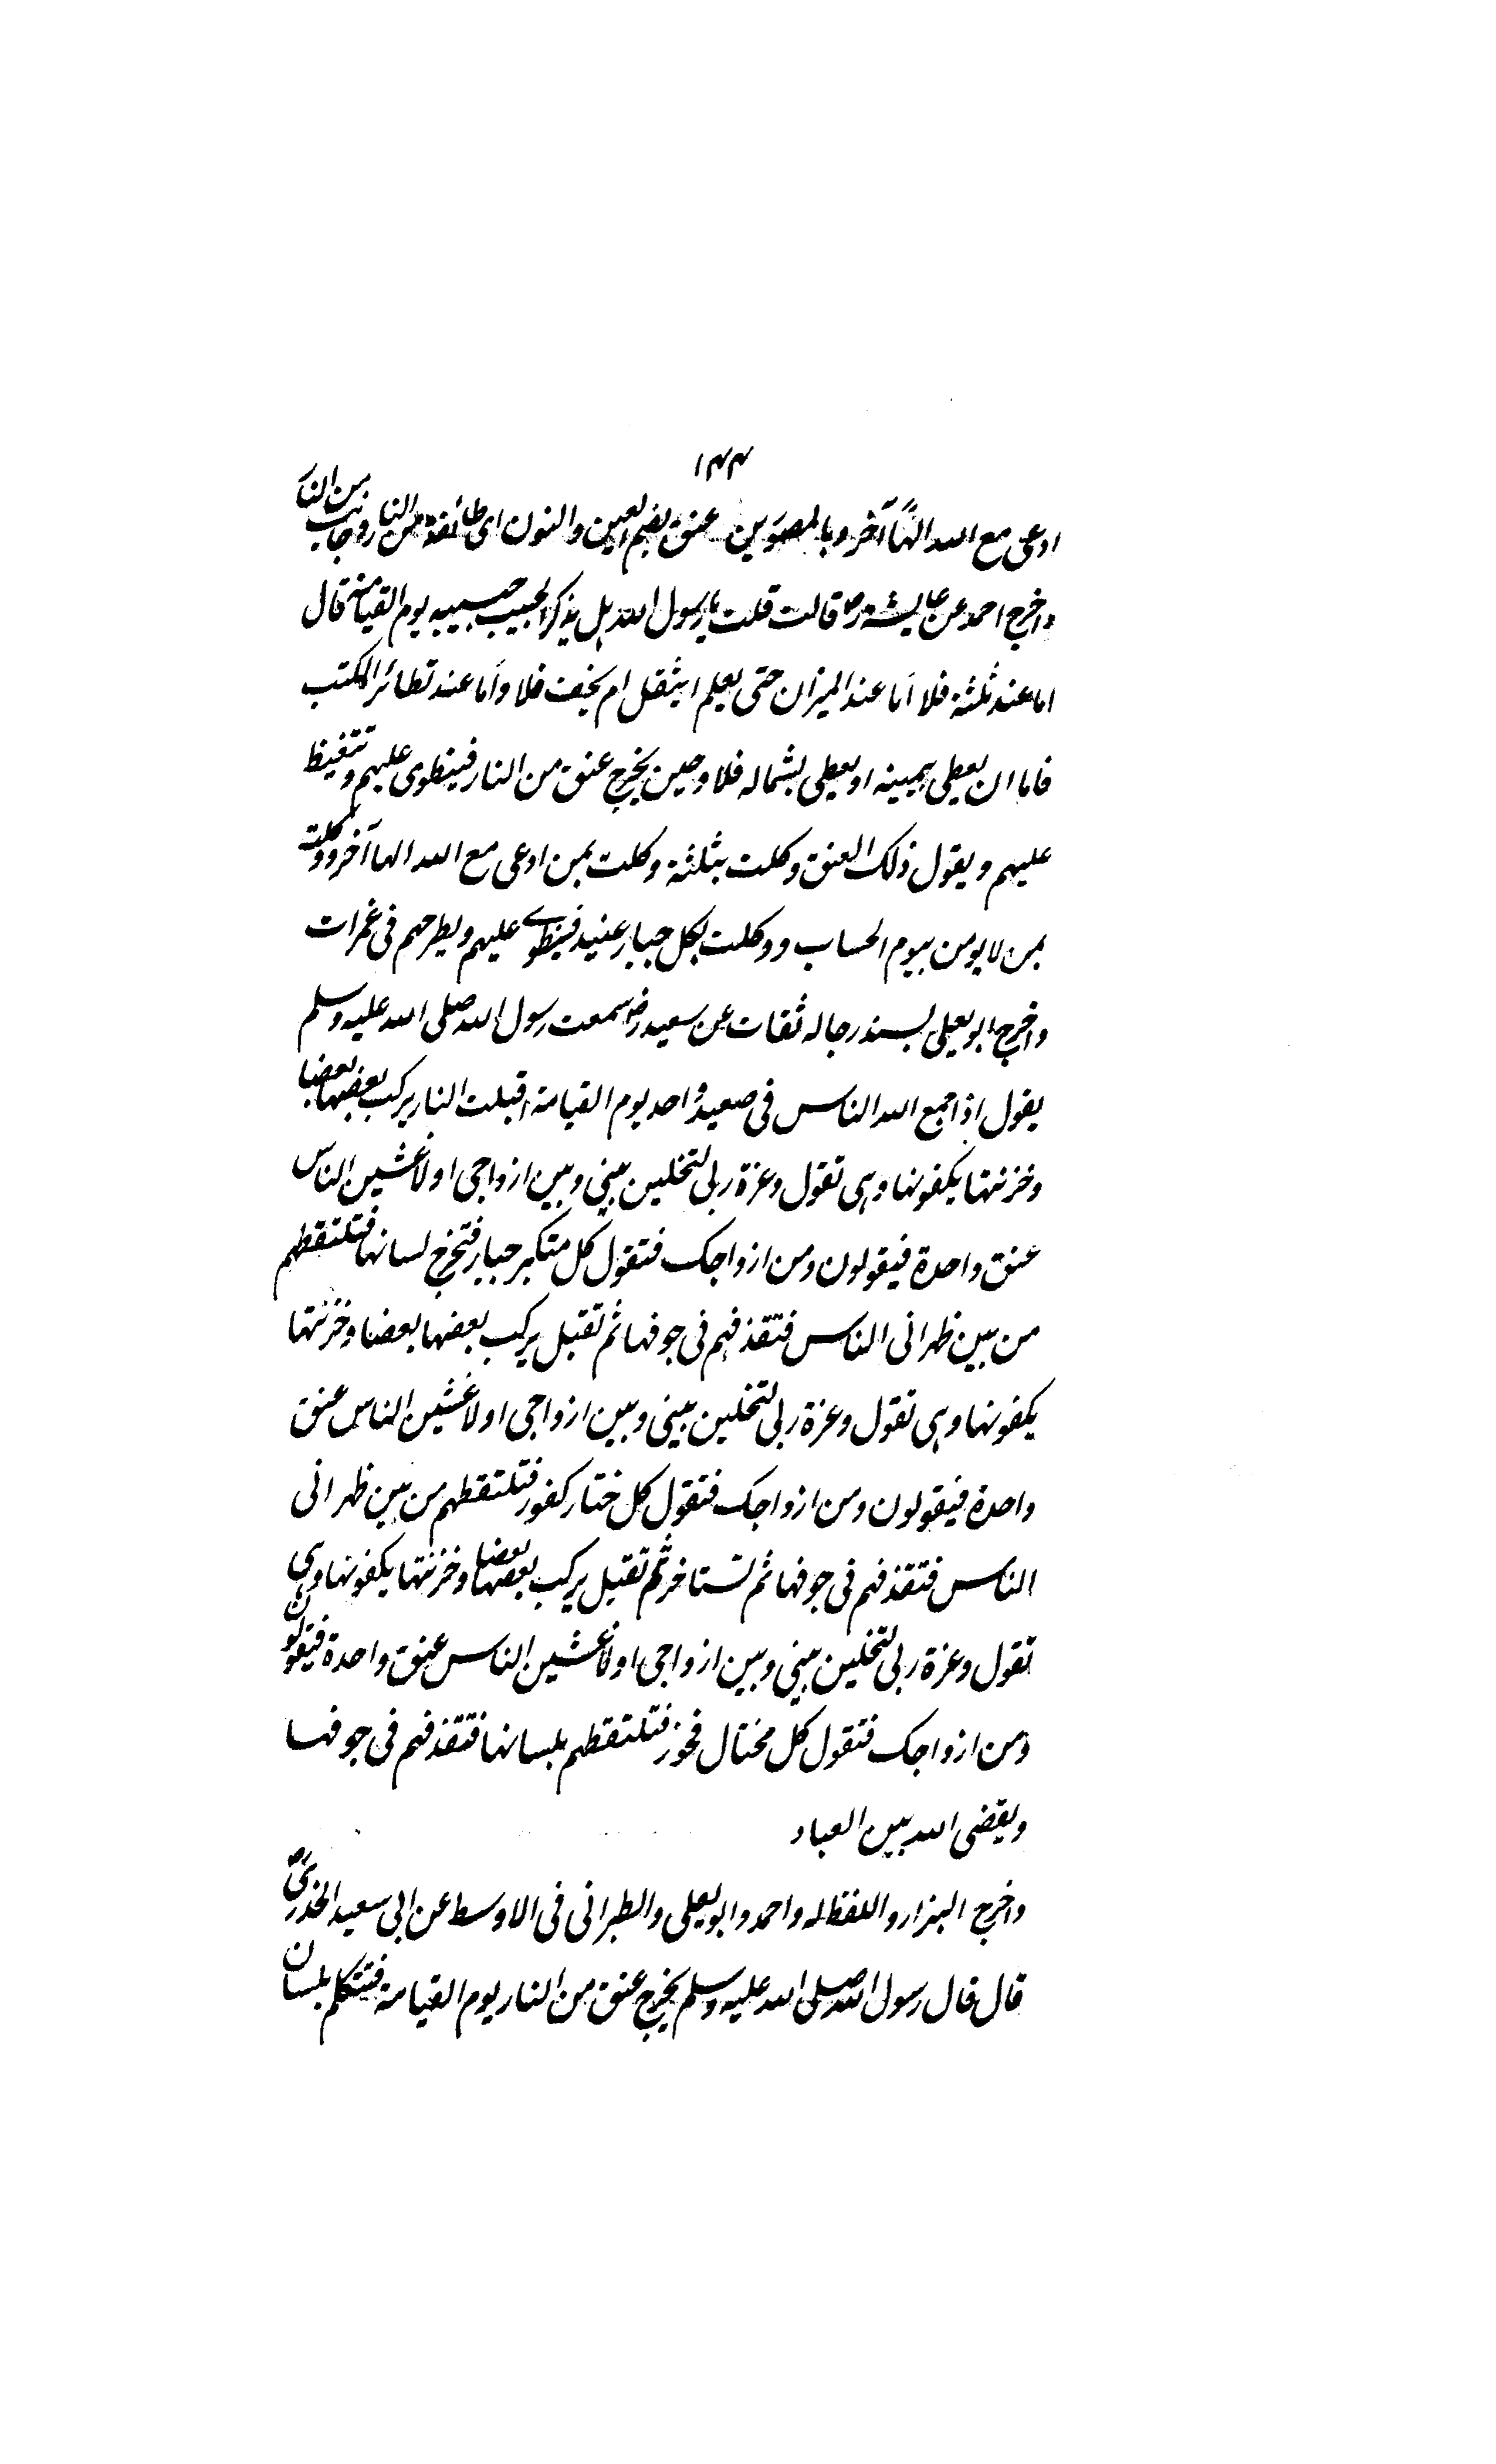 ١٤٤
ادعى مع الله الٰهًا آخر وبالمصورين عنق بضم العين والنون اى طائفة من النار وجانب من النار
واخرج احمد عن عايشه رض قالت قلت يا رسول الله هل يذكر الحبيب حبيبه يوم القيامة قال
اما عند ثلثة فلا اما عند الميزان حتى يعلم ايثقل ام يخف فلا واما عند تطائر الكتب
فاما ان يعطى بيمينه او يعطى بشماله فلا وحين يخرج عنق من النار فينطوى عليهم وتتغيظ
عليهم ويقول ذلك العنق وكلت بثلثة وكلت بمن ادعى مع الله الها آخر ووكلت
بمن لا يومن بيوم الحساب ووكلت بكل جبار عنيد فينطوے عليهم ويطرحهم فى غمرات
واخرج ابو يعلى بسند رجاله ثقات عن سعيد رض سمعت رسول الله صلى الله عليه وسلم
يقول اذا جمع الله الناس فى صعيد واحد يوم القيامة اقبلت النار يركب بعضها بعضا
وخزنتها يكفونها وہى تقول وعزة ربى لتخلين بينى وبين ازواجى او لاغشين الناس
عنق واحدة فيقولون ومن ازواجك فتقول كل متكبر جبار فتخرج لسانها فتلتقطهم
من بين ظهرانى الناس فتقذفهم فى جوفها ثم تقبل يركب بعضها بعضا وخزنتها
يكفونها وہى تقول وعزة ربى لتخلين بينى وبين ازواجى او لاغشين الناس عنق
واحدة فيقولون ومن ازواجك فتقول كل ختار كفور فتلتقطهم من بين ظهرانى
الناس فتقذفهم فى جوفها ثم تستاخر ثم تقبل يركب بعضها بعضا وخزنتها يكفونها وہى
تقول وعزة ربى لتخلين بينى وبين ازواجى او لاغشين الناس عنق واحدة فيقولون
ومن ازواجك فتقول كل مختال فخور فتلتقطهم بلسانها فتقذفهم فى جوفها
ويقضى الله بين العباد
واخرج البزار واللفظ له واحمد وابو يعلى والطبرانى فى الاوسط عن ابى سعيد الخدرى رض
قال قال رسول الله صلى الله عليه وسلم يخرج عنق من النار يوم القيامة فتتكلم بلسان